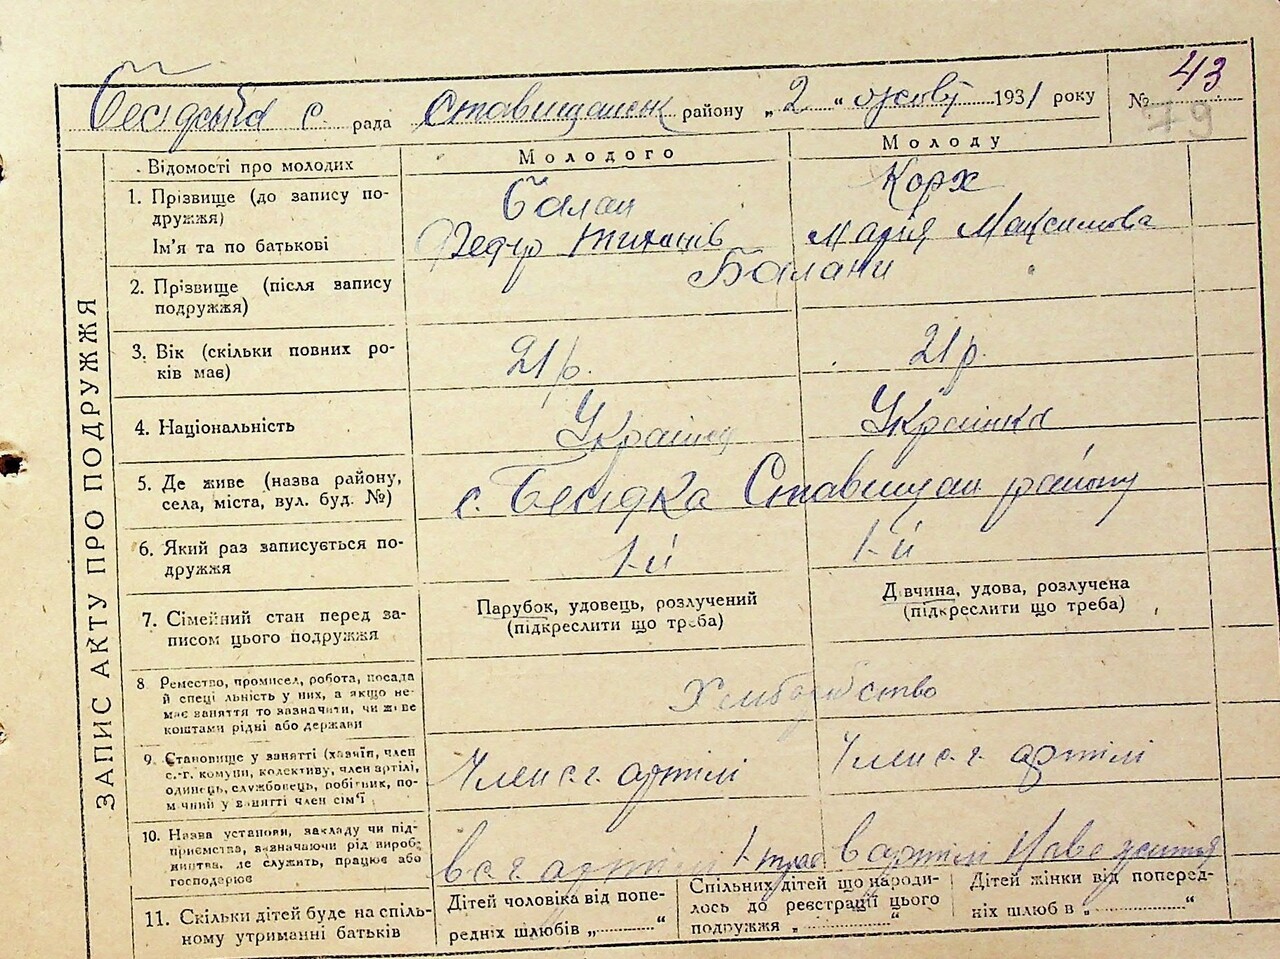 43
Бесідська с. рада Ставищанськ району „2“ 1931 року №
79
ЗАПИС АКТУ ПРО ПОДРУЖЖЯ
Відомості про молодих
Молодого
Молоду
1. Прізвище (до запису по-
дружжя)
Ім'я та по батькові
Балан
Федір Тиханів
Корх
Марія Максимова
2. Прізвище (після запису
подружжя)
Балани
3. Вік (скільки повних ро-
ків має)
21 р.
21 р.
4. Національність
Українец
Українка
5. Де живе (назва району,
села, міста, вул. буд. №)
с. Бесідка Ставищан району
6. Який раз записується по-
дружжя
1-й
1-й
7. Сімейний стан перед за-
писом цього подружжя
Парубок, удовець, розлучений
(підкреслити що треба)
Дівчина, удова, розлучена
(підкреслити що треба)
8 Ремество, промисел, робота, посада
й спеці льність у них, а якщо не-
має заняття то зазначити, чи живе
коштами рідні або держави
Хліборобство
9. Становище у занятті (хазяїн, член
с.-г. комуни, колективу, член артілі,
одинець, службовець, робітник, по-
мічний у занятті член сім'ї
Член с.г. артілі
Член с.г. артілі
10. Назва установи, закладу чи під-
приємства, зазначаючи рід вироб-
ництва, де служить, працює або
господарює
в с г артілі 1 трав
в артілі Нове життя
11. Скільки дітей буде на спіль-
ному утриманні батьків
Дітей чоловіка від попе-
редніх шлюбів „ “
Спільних дітей що народи-
лось до реєстрації цього
подружжя „ “
Дітей жінки від поперед-
ніх шлюб в „ “